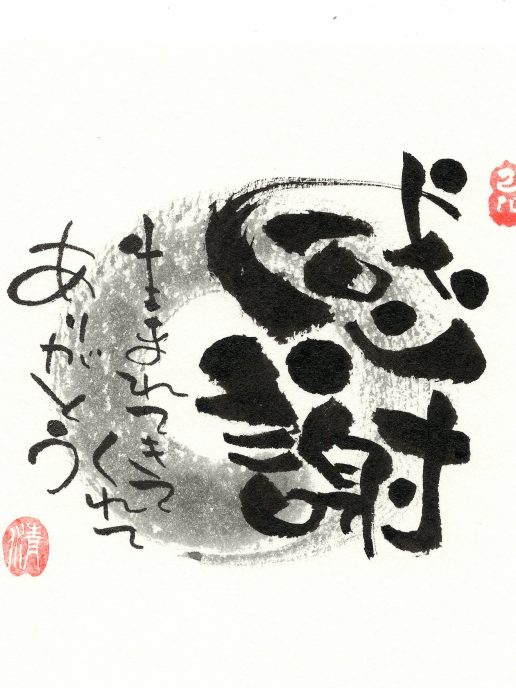 感謝
生まれてきて
くれて
ありがとう
清